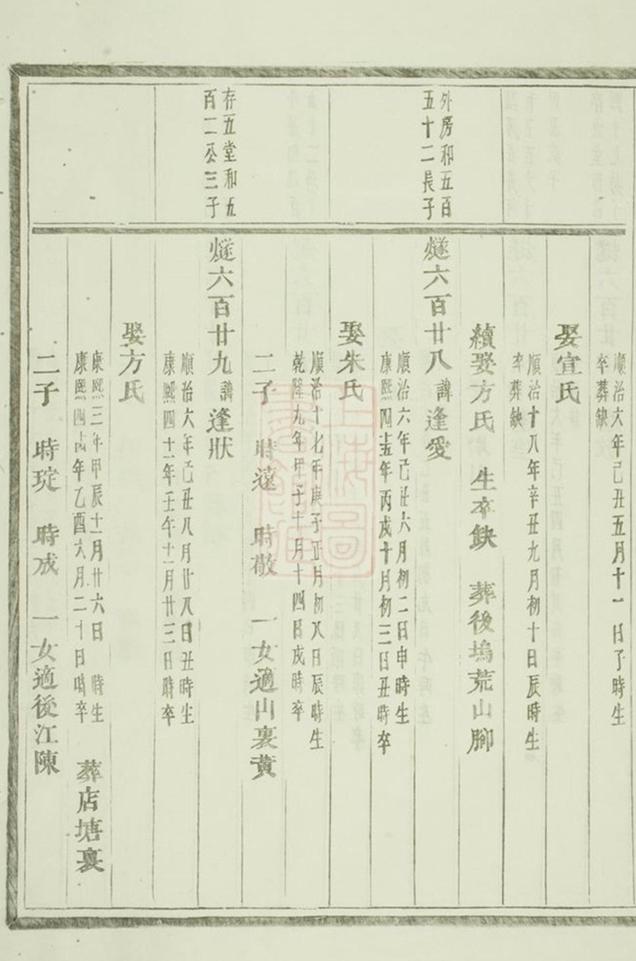 順治六年己丑五月十一日子時生
卒葬缺
娶宣氏
順治十八年辛丑九月初十日辰時生
卒葬缺
續娶方氏 生卒缺 葬後塢荒山腳
外房和五百
五十二長子
燧六百廿八 諱逢愛
順治六年己丑六月初二日申時生
康熙四十五年丙戌十月初三日丑時卒
娶朱氏
順治十七年庚子正月初八日辰時生
乾隆九年甲子十月十四日戌時卒
二子 時遠 時敬 一女適山裏黄
存五堂和五
百二公三子
燧六百廿九 諱逢狀
順治六年己丑八月廿八日丑時生
康熙四十一年壬午十一月廿三日時卒
娶方氏
康熙三年甲辰十一月廿六日 時生
康熙四十四年乙酉六月二十日 時卒 葬店塘裏
二子 時琔 時成 一女適後江陳